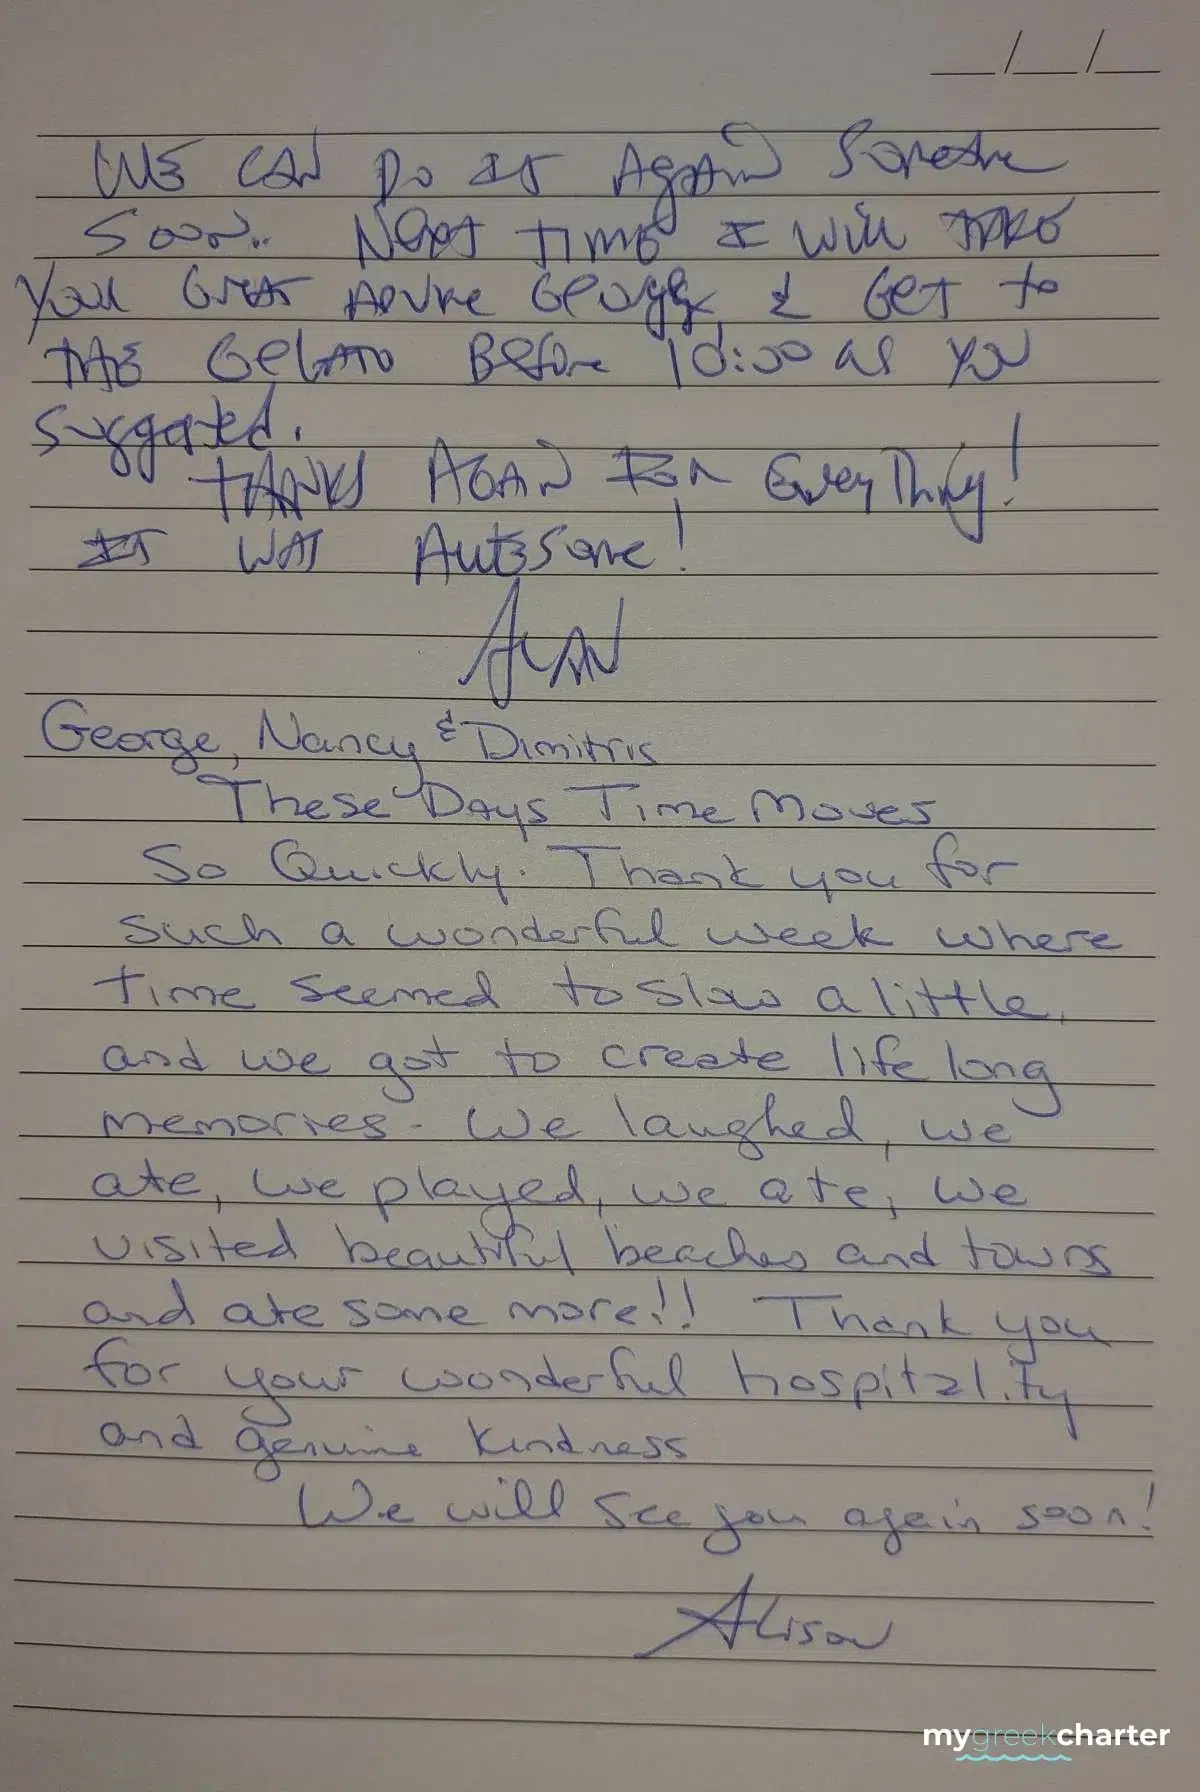 __/__/__
WE CAN DO IT AGAIN Sometime
Soon.. Next TIME I will TAKE
Your Great Advice George, & Get to
THE Gelato Before 10:00 as you
suggested.
THANKS AGAIN FOR EveryThing!
IT WAS AWESOME!
ALAN
George, Nancy & Dimitris
These Days Time Moves
So Quickly. Thank you for
such a wonderful week where
time seemed to slow a little,
and we got to create life long
memories. We laughed, we
ate, we played, we ate, we
visited beautiful beaches and towns
and ate some more!! Thank you
for your wonderful hospitality
and genuine kindness
We will see you again soon!
Alison
mygreekcharter